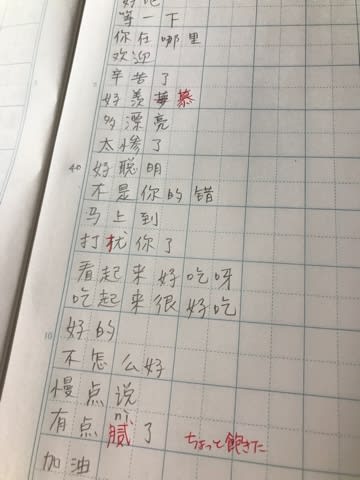 好吧
等一下
你在哪里
欢迎
辛苦了
好羡慕
多漂亮
太惨了
40 好聪明
不是你的错
马上到
打扰你了
看起来好吃呀
吃起来很好吃
10 好的
不怎么好
慢点说
有点腻了 ちょっと飽きた
加油